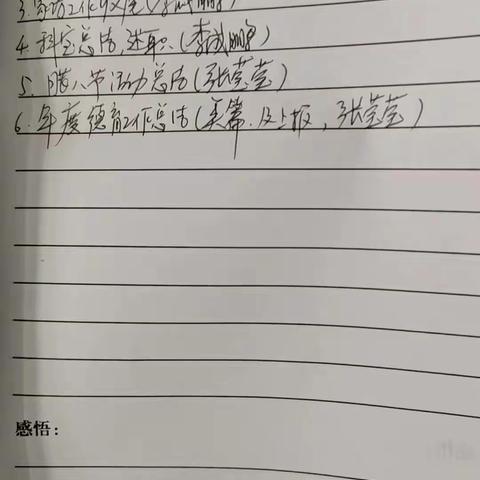 3. 家访工作收集(李斌鹏)
4. 科室总结,述职.(李斌鹏)
5. 腊八节活动总结(张莹莹)
6. 年度德育工作总结(美篇.及上报,张莹莹)
感悟: